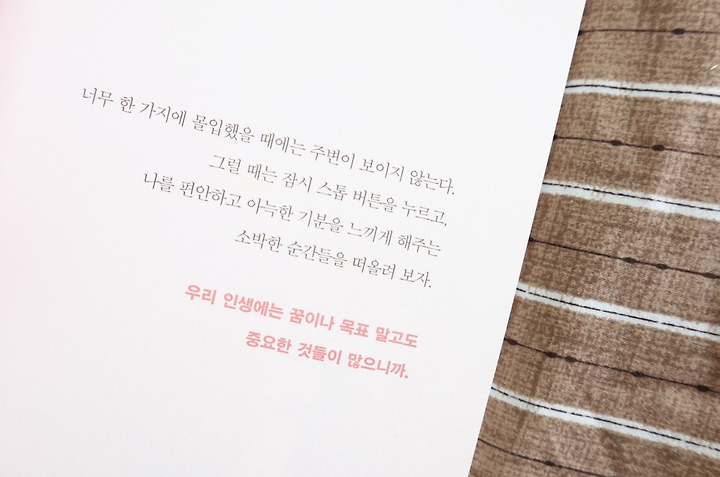 너무 한 가지에 몰입했을 때에는 주변이 보이지 않는다.
그럴 때는 잠시 스톱 버튼을 누르고,
나를 편안하고 아늑한 기분을 느끼게 해주는
소박한 순간들을 떠올려 보자.
우리 인생에는 꿈이나 목표 말고도
중요한 것들이 많으니까.